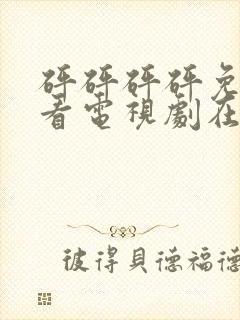 砰砰砰砰免
看電視劇在
彼得貝德福德